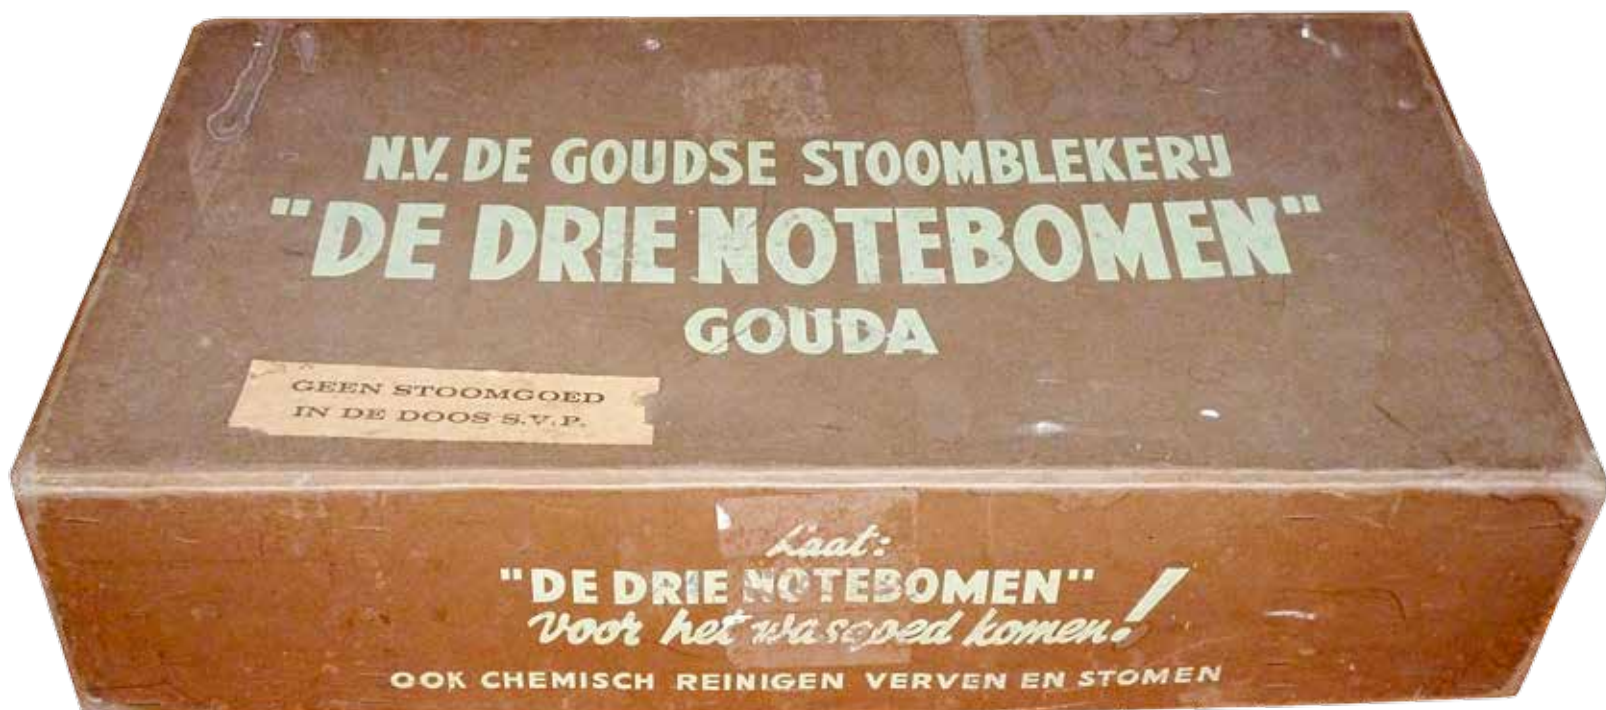 N.V. DE GOUDSE STOOMBLEKERIJ
"DE DRIE NOTEBOMEN"
GOUDA
GEEN STOOMGOED
IN DE DOOS S.V.P.
Laat:
"DE DRIE NOTEBOMEN"
voor het wasgoed komen!
OOK CHEMISCH REINIGEN VERVEN EN STOMEN